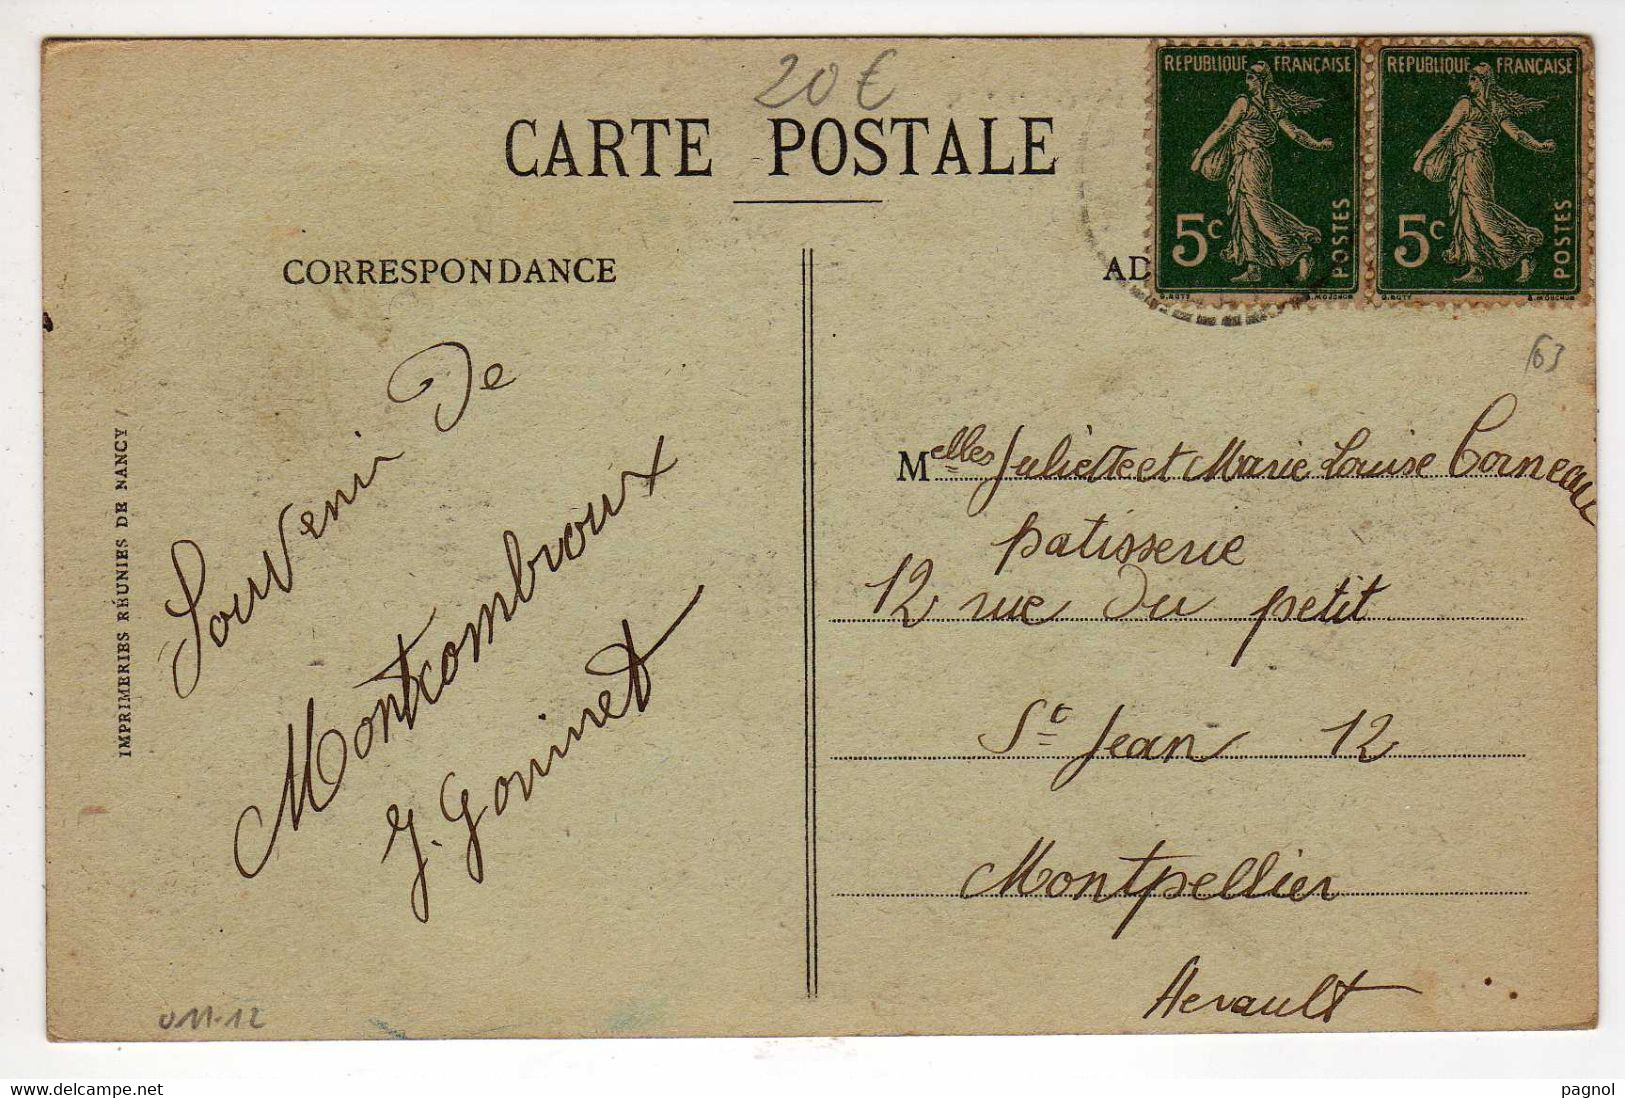 20 €
CARTE POSTALE
REPUBLIQUE FRANÇAISE
5c
POSTES
O. ROTY
E. MOUCHON
REPUBLIQUE FRANÇAISE
5c
POSTES
O. ROTY
E. MOUCHON
CORRESPONDANCE
AD
63
Souvenir De
Montcombroux
J. Gouinet
IMPRIMERIES RÉUNIES DE NANCY
Melles Juliette et Marie Louise Corneau
patisserie
12 rue Du petit
St Jean 12
Montpellier
Herault
www.delcampe.net
pagnol